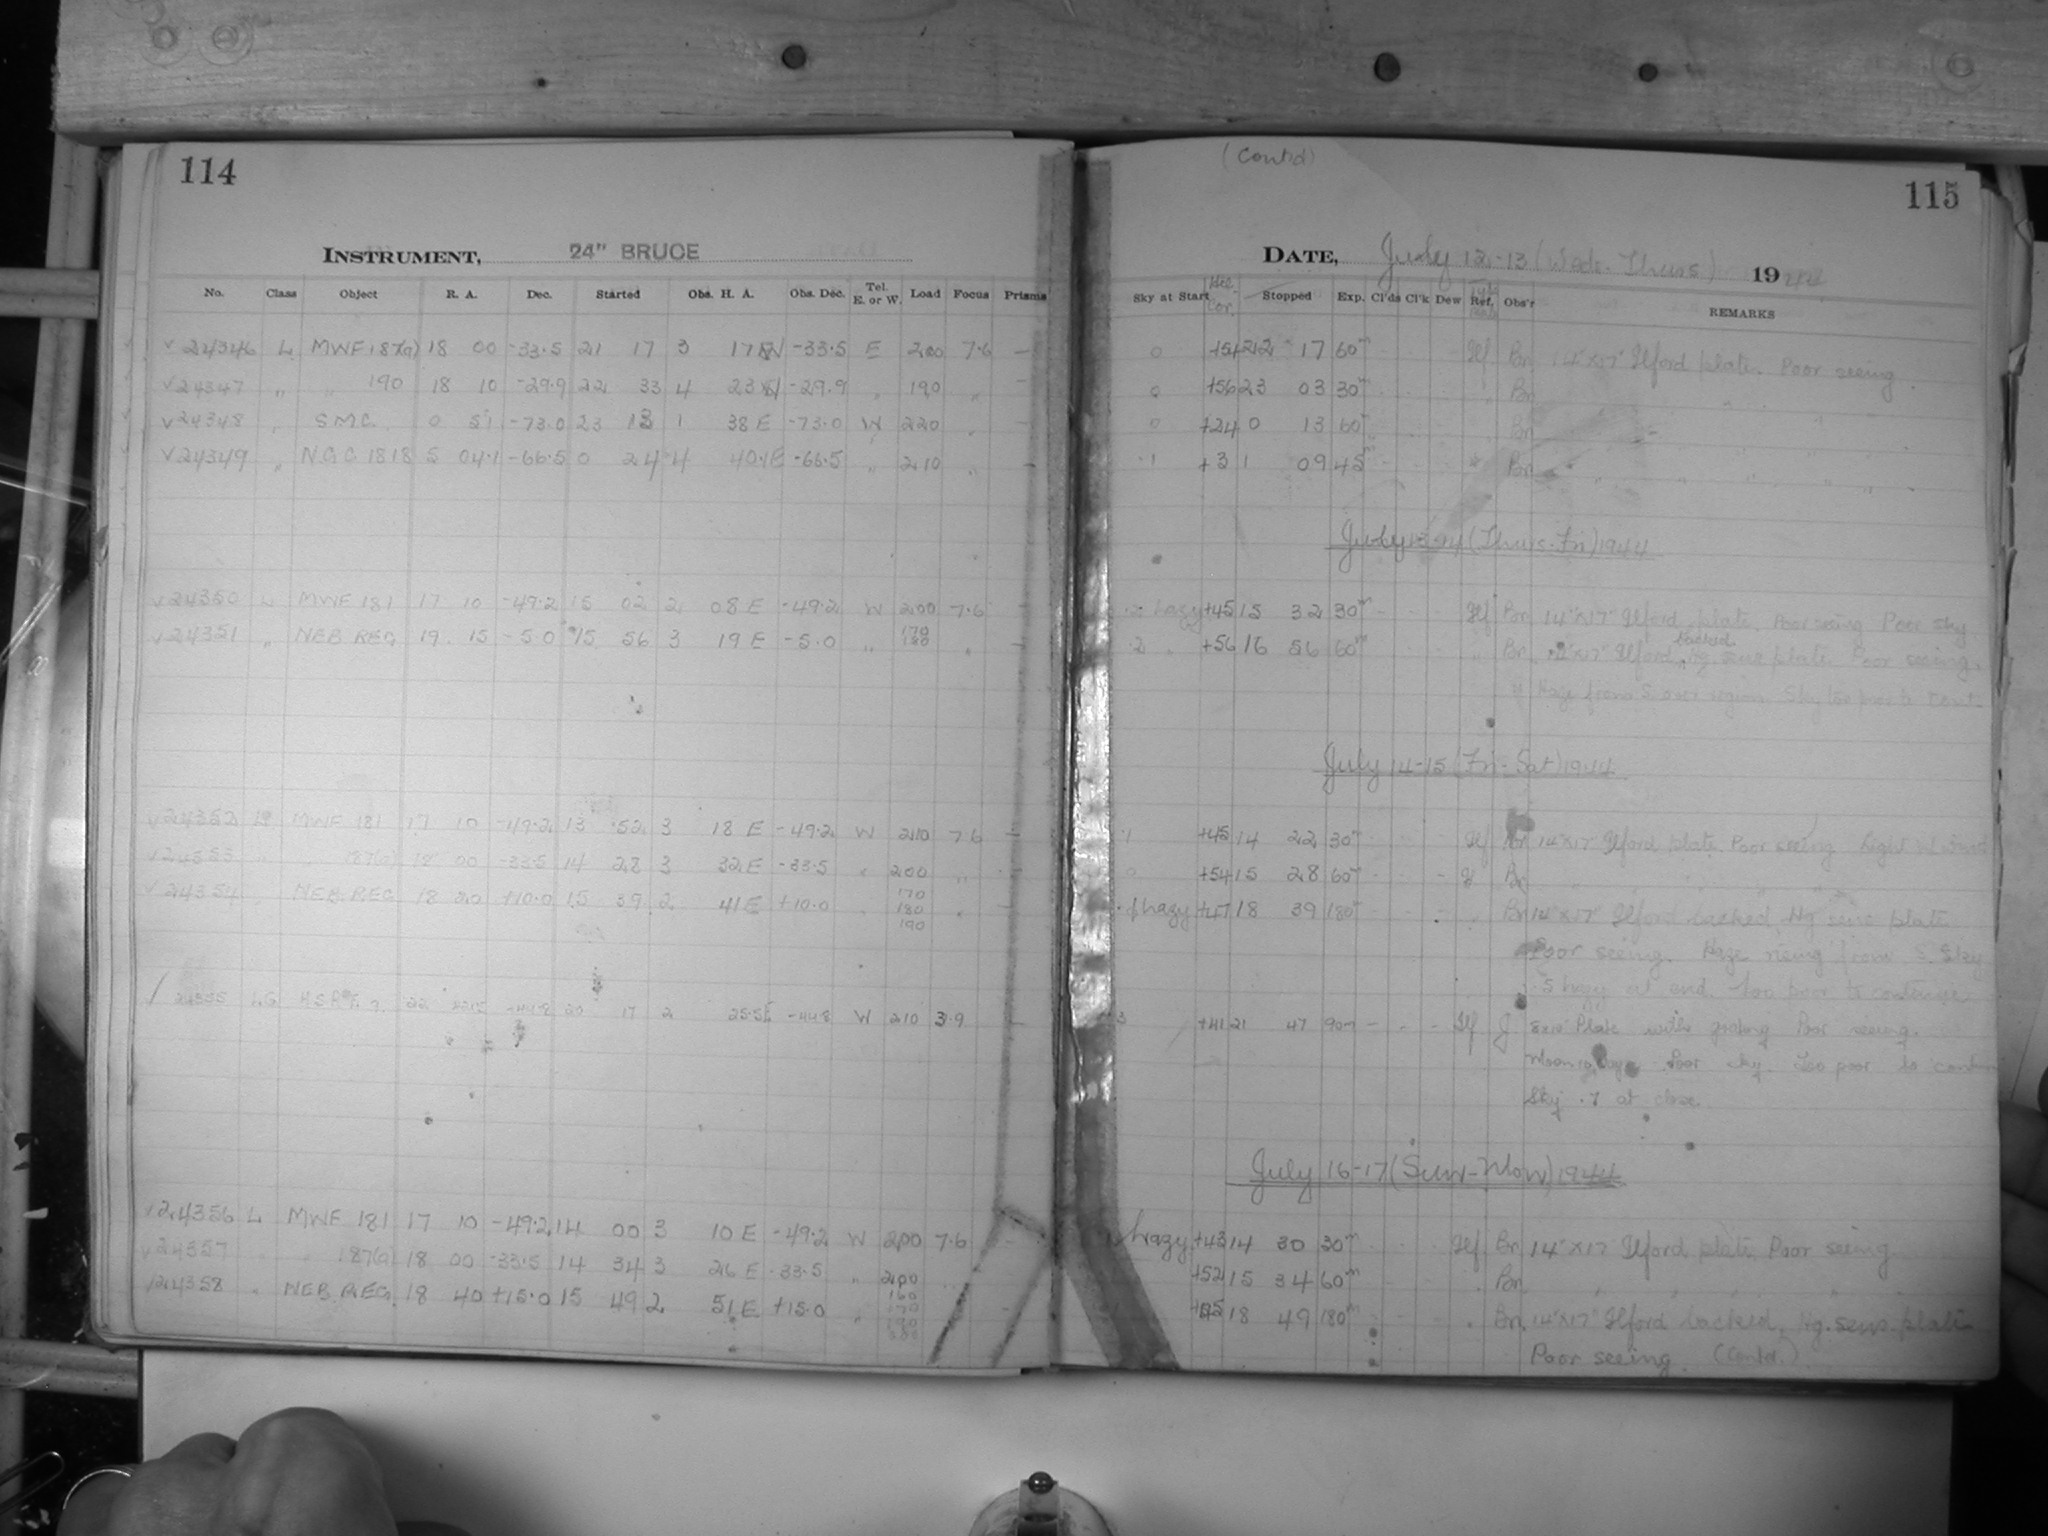 114
INSTRUMENT, 24" BRUCE
No. Class Object R. A. Dec. Started Obs. H. A. Obs. Dec. Tel. E. or W. Load Focus Prisms
√ 24346 L MWF 187(a) 18 00 -33.5 21 17 3 17 W -33.5 E 200 7.6 -
√ 24347 " " 190 18 10 -29.9 22 33 4 23 W -29.9 " 190 " -
√ 24348 " SMC. 0 51 -73.0 23 13 1 38 E -73.0 W 220 " -
√ 24349 " NGC 1818 5 04.1 -66.5 0 24 4 40.1E -66.5 " 210 " -
√ 24350 L MWF 181 17 10 -49.2 15 02 2 08 E -49.2 W 200 7.6 -
√ 24351 " NEB REG 19 15 -5.0 15 56 3 19 E -5.0 " 170 180 " -
√ 24352 L MWF 181 17 10 -49.2 13 52 3 18 E -49.2 W 210 7.6 -
√ 24353 " " 187(a) 18 00 -33.5 14 28 3 32 E -33.5 " 200 "
√ 24354 " NEB REG 18 20 +10.0 15 39 2 41 E +10.0 " 170 180 190 " -
/ 24355 22 -44.8 20 17 2 25.5E -44.8 W 210 3.9 -
√ 24356 L MWF 181 17 10 -49.2 14 00 3 10 E -49.2 W 200 7.6 -
√ 24357 " 187(a) 18 00 -33.5 14 34 3 26 E -33.5 " 200
√ 24358 " NEB REG. 18 40 +15.0 15 49 2 51 E +15.0 " 160 170 190 -
(Contd)
115
DATE, July 12-13 (Wed. Thurs) 1944
Sky at Start Stopped Exp. Cl'ds Cl'k Dew Ref. Obs'r REMARKS
0 +54 22 17 60m Ilf Bn 14"x17" Ilford plate. Poor seeing.
0 +56 23 03 30m " Bn " " " "
0 +24 0 13 60m " Bn " " "
.1 +3 1 09 45m " Bn " " " " " "
July 13-14 (Thurs-Fri) 1944
.2 hazy +45 15 32 30m - - - Ilf Bn 14"x17" Ilford plate. Poor seeing Poor sky
.2 " +56 16 56 60m " Bn 14"x17" Ilford backed Hg. sens plate Poor seeing.
Haze from S over region. Sky too poor to cont.
July 14-15 (Fri-Sat) 1944
.1 +45 14 22 30m Ilf Bn 14"x17" Ilford plate. Poor seeing
0 +54 15 28 60m - Bn " " " "
hazy +47 18 39 180m - " Bn 14"x17" Ilford backed Hg sens plate
Poor seeing. Haze rising from S. Sky
.5 hazy at end. Too poor to continue
3 +41 21 47 90m - - - Ilf J 8x10 Plate with grating Poor seeing.
Poor sky. Too poor to
Sky .7 at close
July 16-17 (Sun-Mon) 1944
hazy +43 14 30 30m Ilf Bn 14"x17 Ilford plate. Poor seeing
+52 15 34 60m " Bn " " " "
18 49 180m " Bn. 14"x17" Ilford backed, Hg. sens. plate
Poor seeing. (Contd.)